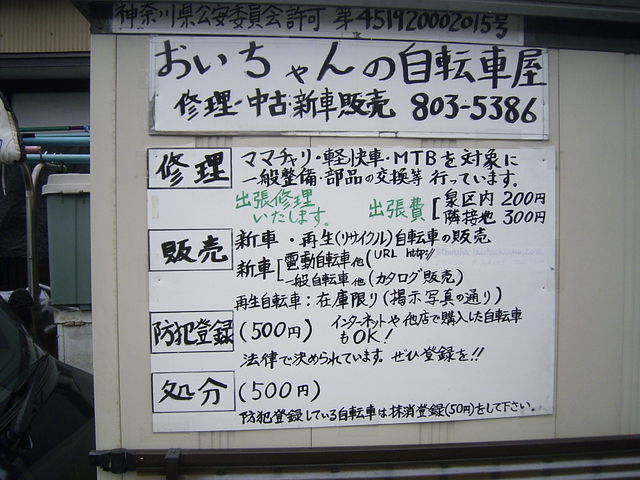 神奈川県公安委員会許可 第451920002015号
おいちゃんの自転車屋
修理・中古・新車販売 803-5386
修理 ママチャリ・軽快車・MTBを対象に
一般整備・部品の交換等 行っています。
出張修理 いたします。 出張費 泉区内 200円
隣接地 300円
販売 新車・再生(リサイクル)自転車の販売
新車 電動自転車 他 (URL http://
一般自転車 他 (カタログ販売)
再生自転車:在庫限り(掲示写真の通り)
防犯登録 (500円) インターネットや他店で購入した自転車
もOK!
法律で決められています。ぜひ登録を!!
処分 (500円)
防犯登録している自転車は抹消登録(50円)をして下さい。